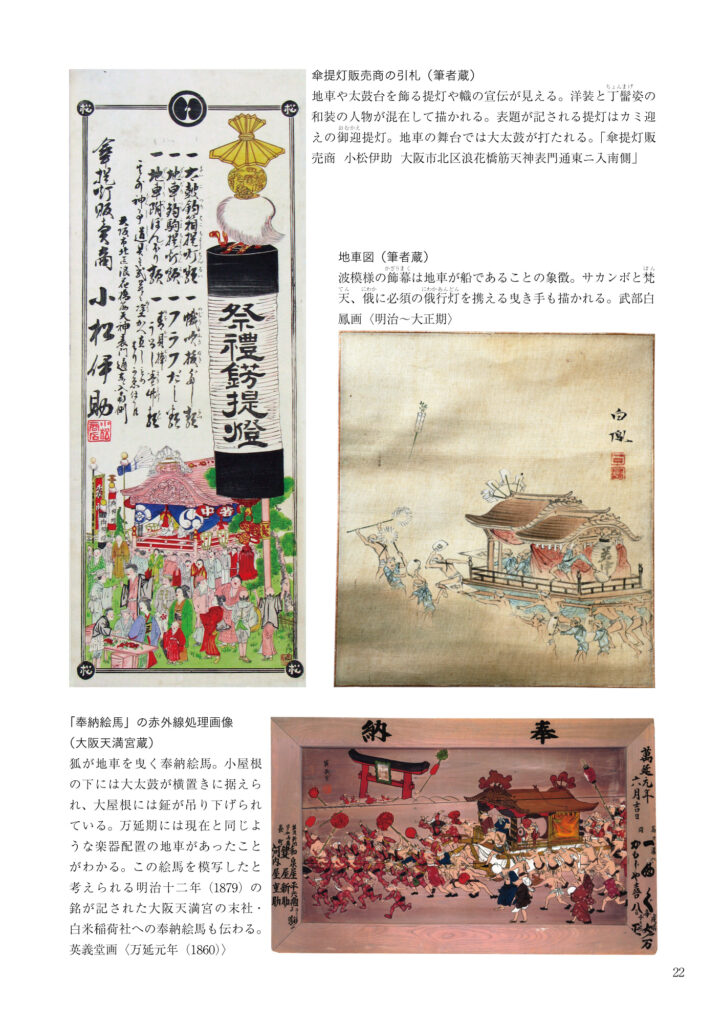 傘提灯販売商の引札（筆者蔵）
地車や太鼓台を飾る提灯や幟の宣伝が見える。洋装と丁髷姿の
和装の人物が混在して描かれる。表題が記される提灯はカミ迎
えの御迎提灯。地車の舞台では大太鼓が打たれる。「傘提灯販
売商 小松伊助 大阪市北区浪花橋筋天神表門通東ニ入南側」
地車図（筆者蔵）
波模様の飾幕は地車が船であることの象徴。サカンボと梵
天、俄に必須の俄行灯を携える曳き手も描かれる。武部白
鳳画〈明治～大正期〉
松
松
祭禮錺提燈
傘提灯販賣商 小松伊助
大阪市北区浪花橋筋天神表門通東ニ入南側
中若
松
松
白鳳
「奉納絵馬」の赤外線処理画像
（大阪天満宮蔵）
狐が地車を曳く奉納絵馬。小屋根
の下には大太鼓が横置きに据えら
れ、大屋根には鉦が吊り下げられ
ている。万延期には現在と同じよ
うな楽器配置の地車があったこと
がわかる。この絵馬を模写したと
考えられる明治十二年（1879）の
銘が記された大阪天満宮の末社・
白米稲荷社への奉納絵馬も伝わる。
英義堂画〈万延元年（1860）〉
奉納
萬延元年
六月吉日
22